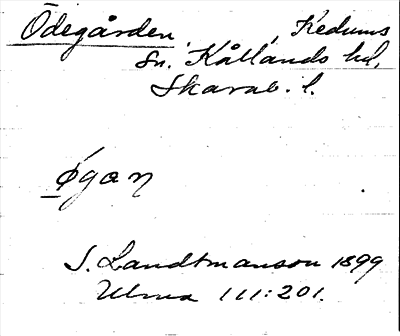 Ödegården, Kedums
Sn. Kållands hd,
Skarab. l.
øgaɳ
S. Landtmanson 1899
Ulma 111:201.